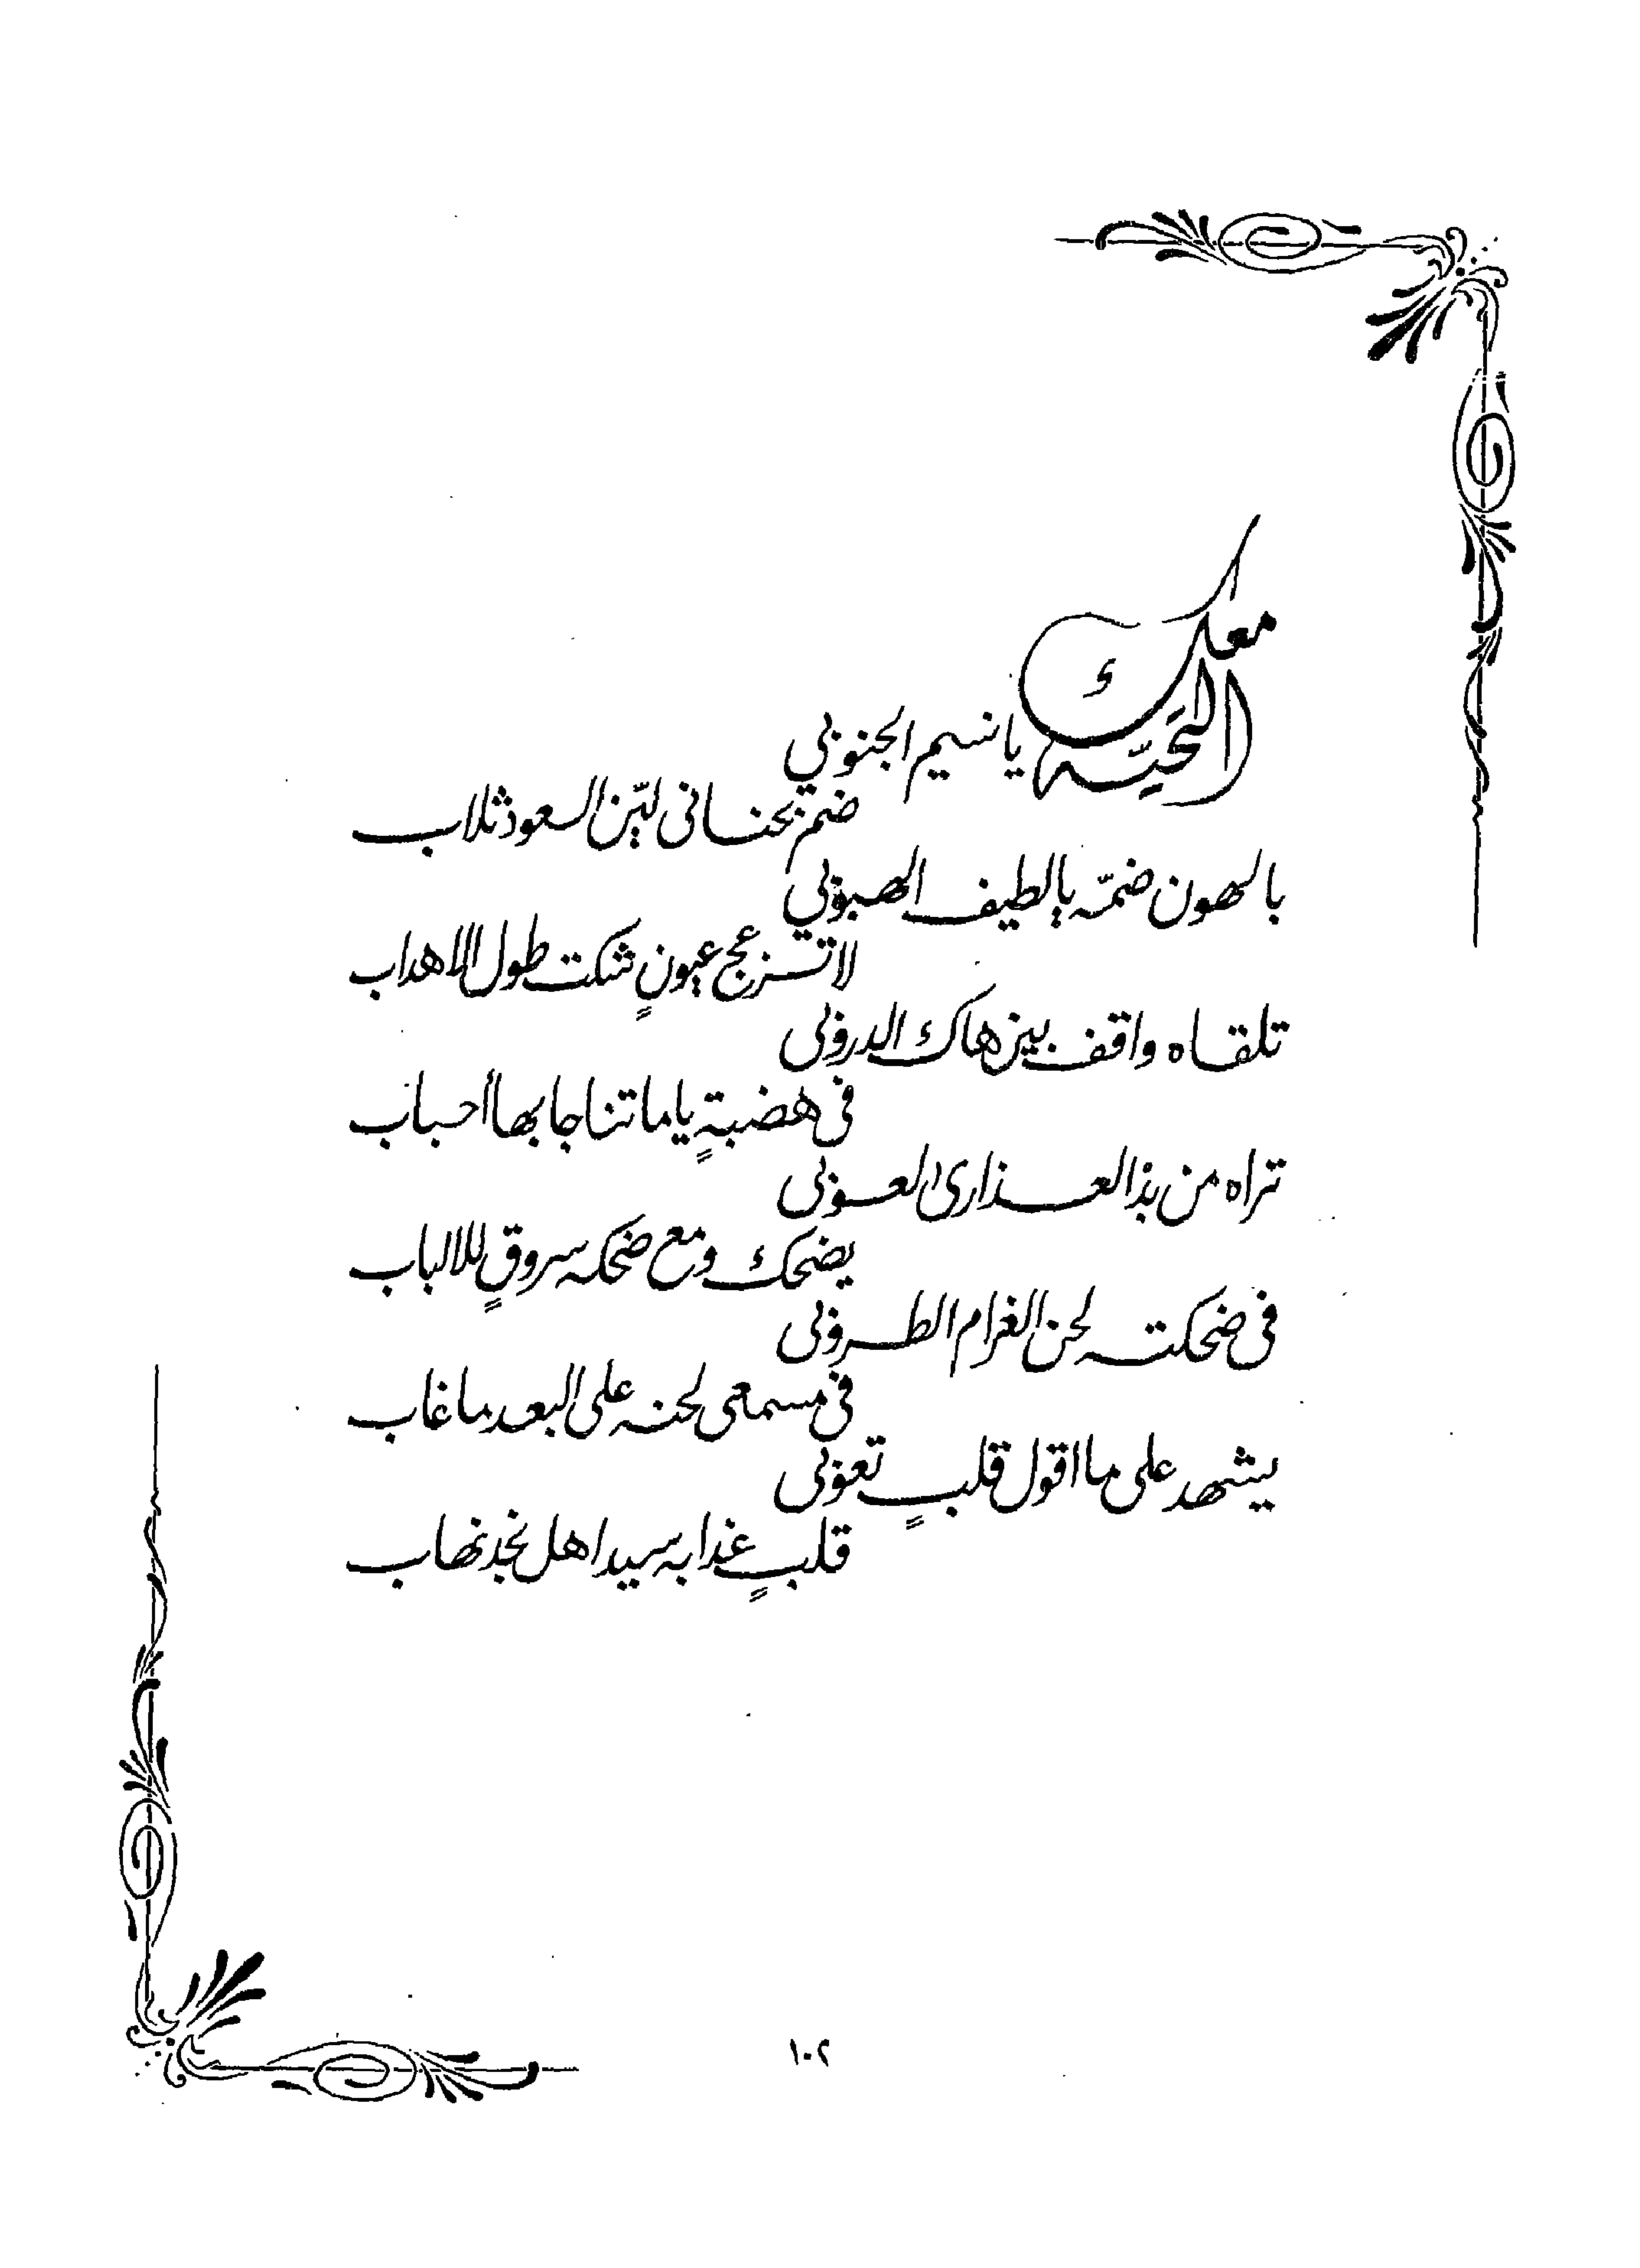 معك التحيّه يا نسيم الجنوبي
ضم بحناني ليّن العود ثلاب
بالهون ضمّه يالطيف الهبوبي
لا تزعج عيونٍ شكت طول الاهداب
تلقاه واقف بين هاك الدروبي
في هضبةٍ ياما تناجا بها أحباب
تراه من بذ العذارى العوبي
يضحك ومع ضحكه سروقٍ للالباب
في ضحكته لحن الغرام الطروبي
في مسمعي لحنه على البعد ما غاب
يشهد على ما اقول قلبٍ تعوبي
قلبٍ غدا به سيد اهل نجد نهاب
١٠٢